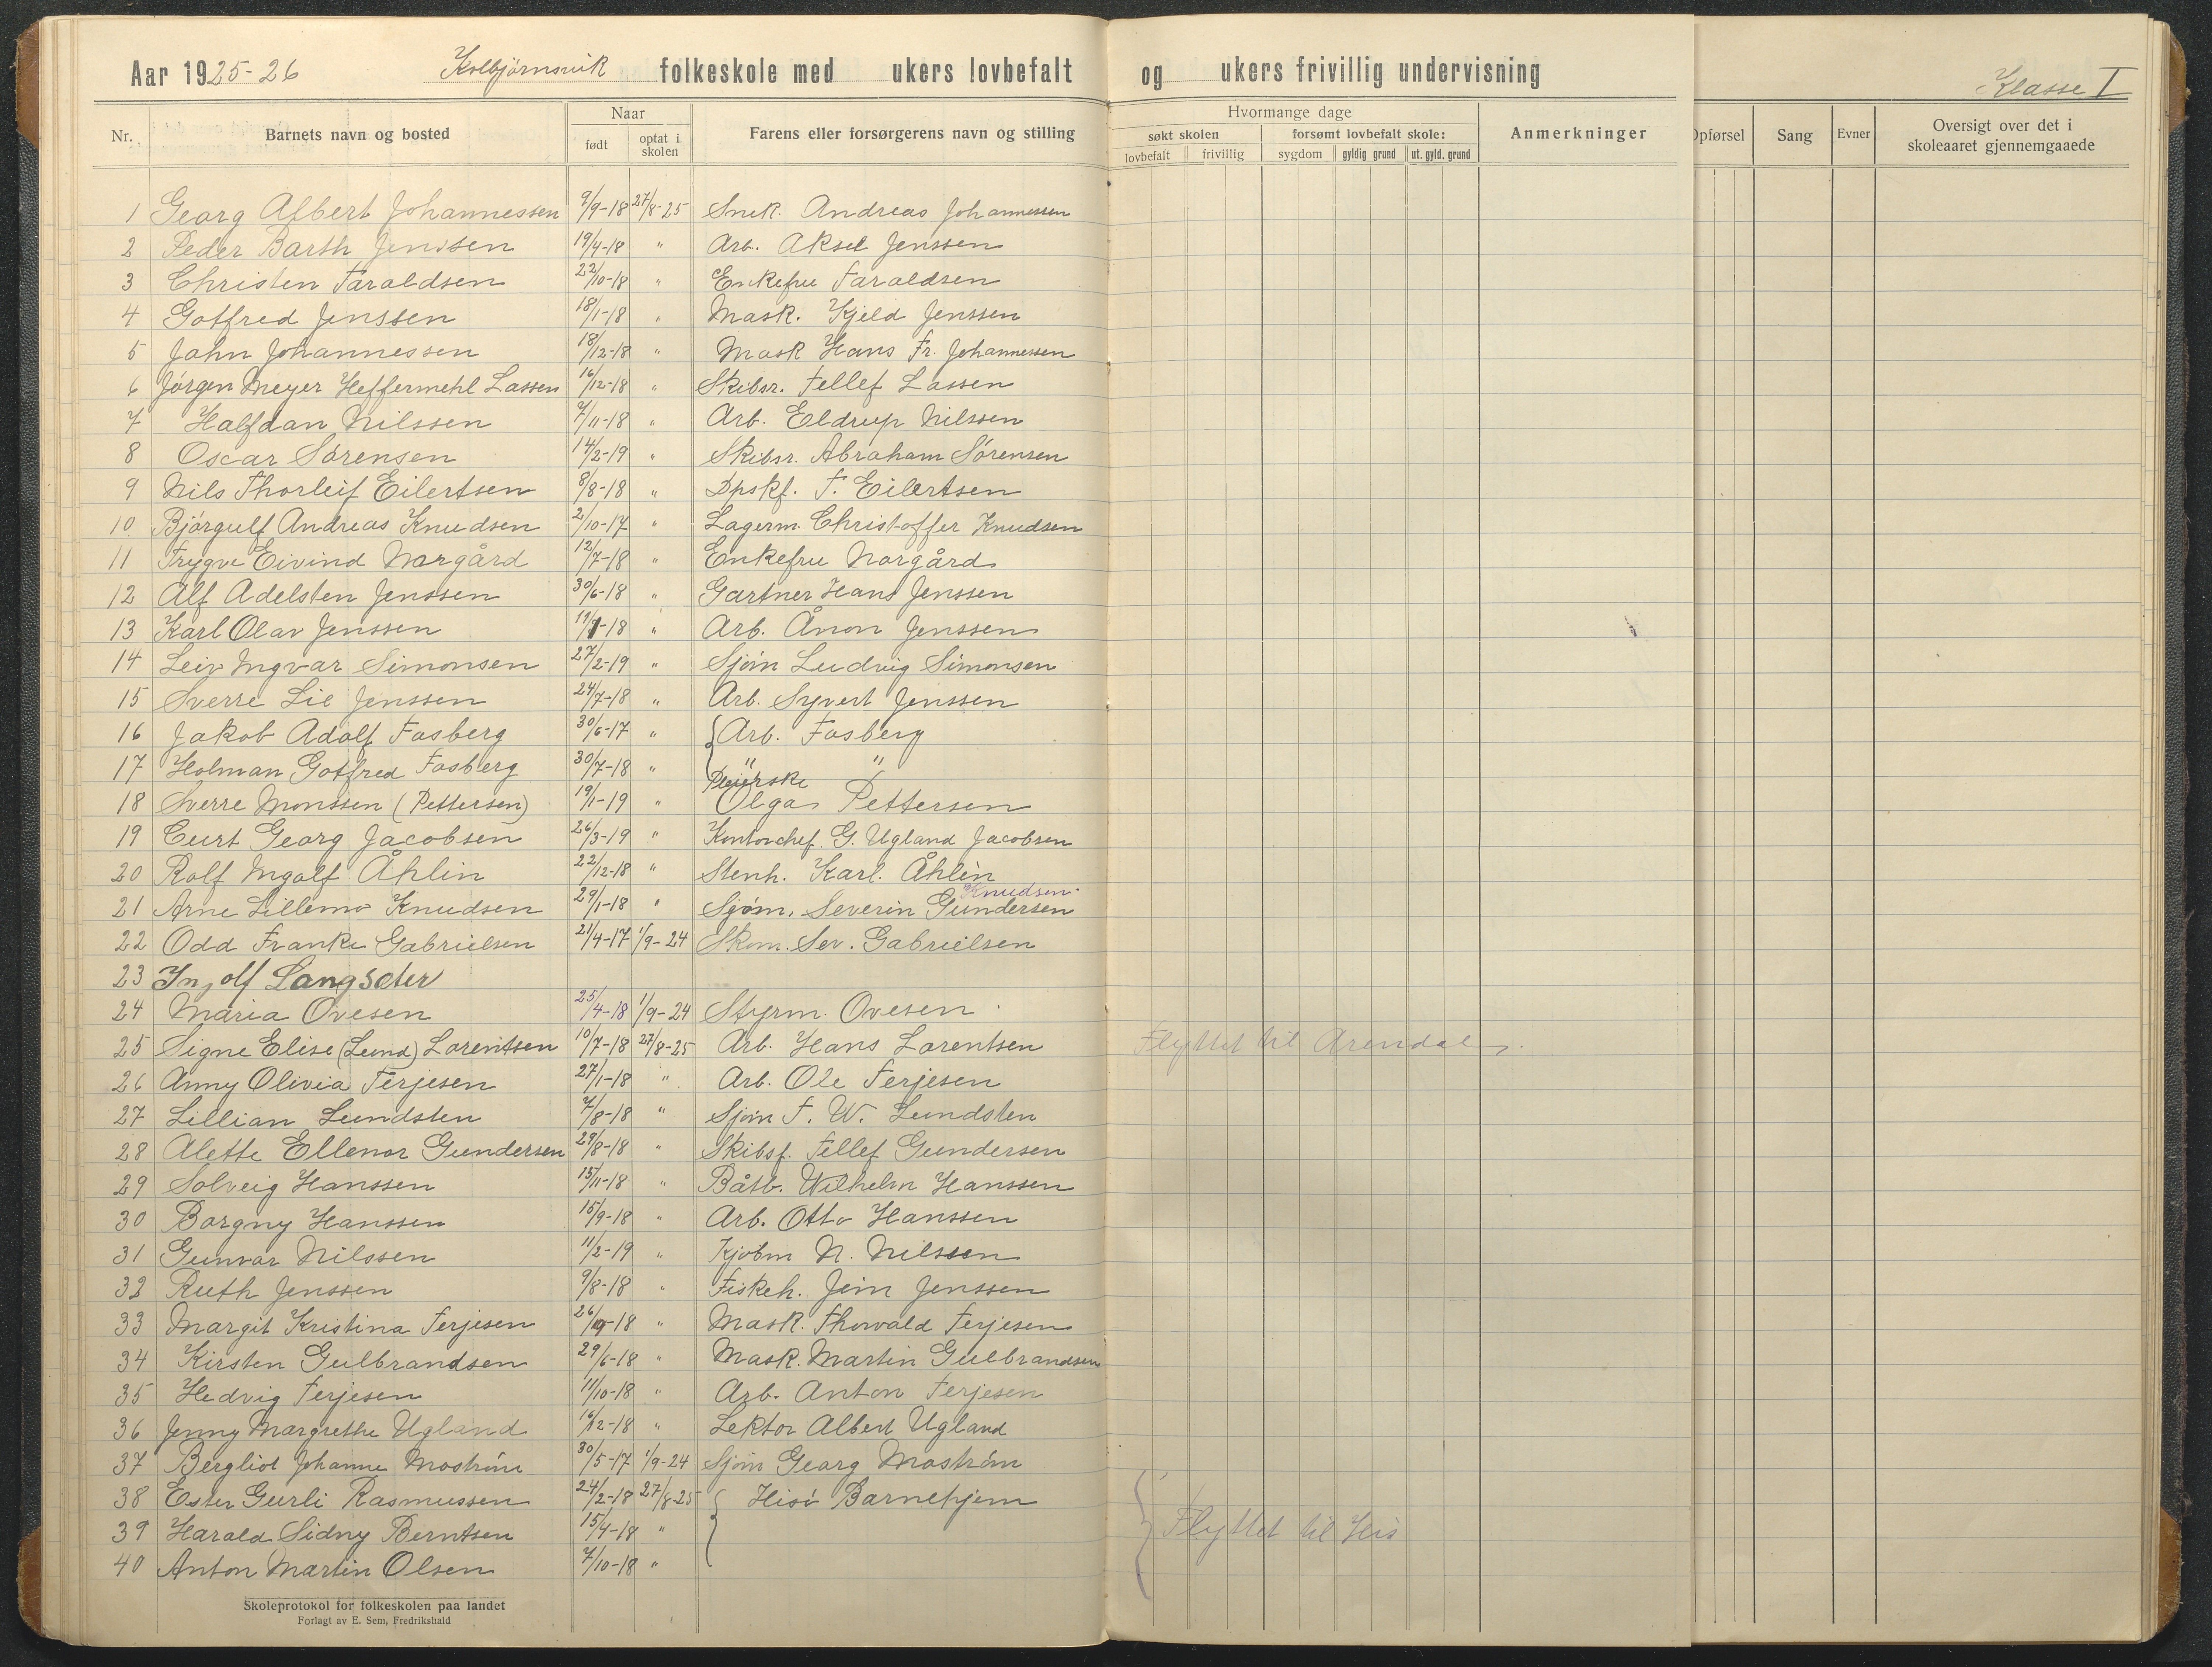 Aar 1925-26 Kolbjørnsvik folkeskole med ukers lovbefalt og ukers frivillig undervisning Klasse I
Nr. Barnets navn og bosted Naar født optat i skolen Farens eller forsørgerens navn og stilling Hvormange dage søkt skolen lovbefalt frivillig forsømt lovbefalt skole: sygdom gyldig grund ut. gyld. grund Anmerkninger Opførsel Sang Evner Oversigt over det i skoleaaret gjennemgaaede
1 Georg Albert Johannessen 9/9-18 27/8-25 Snek. Andreas Johannessen
2 Peder Barth Jenssen 19/4-18 " Arb. Aksel Jenssen
3 Christen Taraldsen 22/10-18 " Enkefru Taraldsen
4 Gotfred Jenssen 18/1-18 " Mask. Kjeld Jenssen
5 John Johannessen 18/12-18 " Mask Hans Fr. Johannessen
6 Jørgen Meyer Heffermehl Lassen 16/12-18 " Skibsr. Tellef Lassen
7 Halfdan Nilssen 7/11-18 " Arb. Eldrup Nilssen
8 Oscar Sørensen 14/2-19 " Skibsr. Abraham Sørensen
9 Nils Thorleif Eilertsen 8/8-18 " Dpskf. T. Eilertsen
10. Bjørgulf Andreas Knudsen 2/10-17 " Lagerm. Christoffer Knudsen
11 Trygve Eivind Norgård 12/7-18 " Enkefru Norgård
12 Alf Adelsten Jenssen 30/6-18 " Gartner Hans Jenssen
13 Karl Olav Jenssen 19/1-18 " Arb. Ånon Jenssen
14 Leiv Ingvar Simonsen 27/2-19 " Sjøm Ludvig Simonsen
15 Sverre Lie Jenssen 24/7-18 " Arb. Syvert Jenssen
16 Jakob Adolf Fosberg 30/6-17 " Arb. Fosberg
17 Holman Gotfred Fosberg 30/7-18 " " "
18 Sverre Monssen (Pettersen) 19/1-19 " Pleierske Olga Pettersen
19 Curt Georg Jacobsen 26/3-19 " Kontorchef. G. Ugland Jacobsen
20 Rolf Ingolf Åhlin 22/12-18 " Stenh. Karl. Åhlin
21 Arne Lillemo Knudsen 29/1-18 " Sjøm. Severin Gundersen Knudsen
22 Odd Franke Gabrielsen 21/4-17 1/9-24 Skom. Sev. Gabrielsen
23 Ingolf Langseter
24 Maria Ovesen 25/4-18 1/9-24 Styrm. Ovesen
25 Signe Elise (Lund) Lorentsen 10/7-18 27/8-25 Arb. Hans Lorentsen Flyttet til Arendal.
26 Anny Olivia Terjesen 27/1-18 " Arb. Ole Terjesen
27 Lillian Lundsten 7/8-18 " Sjøm F. W. Lundsten
28 Alette Ellenor Gundersen 29/8-18 " Skibsf. Tellef Gundersen
29 Solveig Hanssen 15/11-18 " Båtb. Wilhelm Hanssen
30 Borgny Hanssen 15/9-18 " Arb. Otto Hanssen
31 Gunvor Nilssen 11/2-19 " Kjøbm N. Nilssen
32 Ruth Jenssen 9/8-18 " Fiskeh. Jens Jenssen
33 Margit Kristina Terjesen 26/9-18 " Mask. Thorvald Terjesen
34 Kirsten Gulbrandsen 29/6-18 " Mask. Martin Gulbrandsen
35 Hedvig Terjesen 11/10-18 " Arb. Anton Terjesen
36 Jenny Margrethe Ugland 16/12-18 " Lektor Albert Ugland
37 Bergliot Johanne Mostrøm 30/5-17 1/9-24 Sjøm Georg Mostrøm
38 Ester Gurli Rasmussen 24/2-18 27/8-25 Hisø Barnehjem
39 Harald Sidny Berntsen 15/4-18 " Flyttet til His
40 Anton Martin Olsen 7/10-18 "
Skoleprotokol for folkeskolen paa landet
Forlagt av E. Sem, Fredrikshald